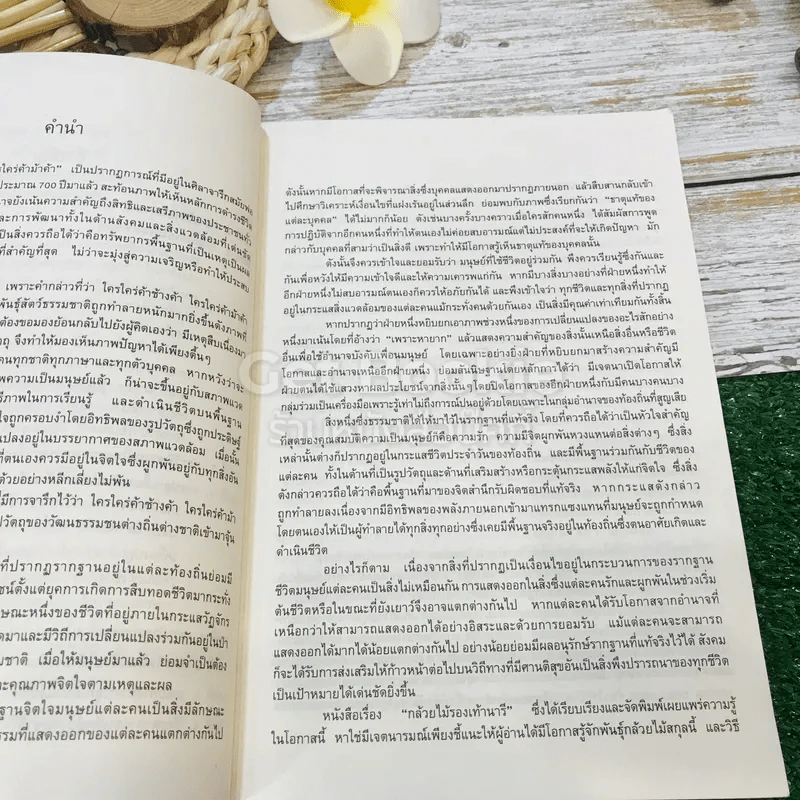 คำนำ
ใครใคร่ค้าม้าค้า” เป็นปรากฏการณ์ที่มีอยู่ในศิลาจารึกสมัยพ่อ
ประมาณ 700 ปีมาแล้ว สะท้อนภาพให้เห็นหลักการดำรงชีวิต
าจยังเน้นความสำคัญถึงสิทธิและเสรีภาพของประชาชนทั่ว
และการพัฒนาทั้งในด้านสังคมและสิ่งแวดล้อมที่เด่นชัด
สิ่งควรถือได้ว่าคือทรัพยากรพื้นฐานที่เป็นเหตุเป็นผล
ที่สำคัญที่สุด ไม่ว่าจะมุ่งสู่ความเจริญหรือทำให้ประสบ
เพราะคำกล่าวที่ว่า ใครใคร่ค้าช้างค้า ใครใคร่ค้าม้าค้า
พันธุ์สัตว์ธรรมชาติถูกทำลายหนักมากยิ่งขึ้นดังภาพที่
ต้องขอมองย้อนกลับไปยังผู้คิดเองว่า มีเหตุสืบเนื่องมา
ถุ จึงทำให้มองเห็นภาพปัญหาได้เพียงตื้นๆ
คนทุกชาติทุกภาษาและทุกตัวบุคคล หากหวังว่าจะ
พความเป็นมนุษย์แล้ว ก็น่าจะขึ้นอยู่กับสภาพแวด
รีภาพในการเรียนรู้ และดำเนินชีวิตบนพื้นฐาน
ใจถูกครอบงำโดยอิทธิพลของรูปวัตถุซึ่งถูกประดิษฐ์
แปลงอยู่ในบรรยากาศของสภาพแวดล้อม เมื่อนั้น
ที่ตนเองควรมีอยู่ในจิตใจซึ่งผูกพันอยู่กับทุกสิ่งอัน
ด้วยอย่างหลีกเลี่ยงไม่พ้น
มีการจารึกไว้ว่า ใครใคร่ค้าช้างค้า ใครใคร่ค้าม้า
ปวัตถุของวัฒนธรรมชนต่างถิ่นต่างชาติเข้ามาจุ้น
ที่ปรากฏรากฐานอยู่ในแต่ละท้องถิ่นย่อมมี
ชน์ตั้งแต่ยุคการเกิดการสืบทอดชีวิตมากระทั่ง
ษณะหนึ่งของชีวิตที่อยู่ภายในกระแสวัฏจักร
ดมาและมีวิถีการเปลี่ยนแปลงร่วมกันอยู่ในป่า
มชาติ เมื่อให้มนุษย์มาแล้ว ย่อมจำเป็นต้อง
ะคุณภาพจิตใจตามเหตุและผล
ฐานจิตใจมนุษย์แต่ละคนเป็นสิ่งมีลักษณะ
รรมที่แสดงออกของแต่ละคนแตกต่างกันไป
ดังนั้นหากมีโอกาสที่จะพิจารณาสิ่งซึ่งบุคคลแสดงออกมาปรากฏภายนอก แล้วสืบสานกลับเข้า
ไปศึกษาวิเคราะห์เงื่อนไขที่แฝงเร้นอยู่ในส่วนลึก ย่อมพบกับภาพซึ่งเรียกกันว่า “ธาตุแท้ของ
แต่ละบุคคล” ได้ไม่มากก็น้อย ดังเช่นบางครั้งบางคราวเมื่อใครสักคนหนึ่ง ได้สัมผัสการพูด
การปฏิบัติจากอีกคนหนึ่งที่ทำให้ตนเองไม่ค่อยสบอารมณ์แต่ไม่ประสงค์ที่จะให้เกิดปัญหา มัก
กล่าวกับบุคคลที่สามว่าเป็นสิ่งดี เพราะทำให้มีโอกาสรู้เห็นธาตุแท้ของบุคคลนั้น
ดังนั้นจึงควรเข้าใจและยอมรับว่า มนุษย์ที่ใช้ชีวิตอยู่ร่วมกัน พึงควรเรียนรู้ซึ่งกันและ
กันเพื่อหวังให้มีความเข้าใจดีและให้ความเคารพแก่กัน หากมีบางสิ่งบางอย่างที่ฝ่ายหนึ่งทำให้
อีกฝ่ายหนึ่งไม่สบอารมณ์ตนเองก็ควรให้อภัยกันได้ และพึงเข้าใจว่า ทุกชีวิตและทุกสิ่งที่ปรากฏ
อยู่ในกระแสสิ่งแวดล้อมของแต่ละคนแม้กระทั่งคนด้วยกันเอง เป็นสิ่งมีคุณค่าเท่าเทียมกันทั้งสิ้น
หากปรากฏว่าฝ่ายหนึ่งหยิบยกเอาภาพช่วงหนึ่งของการเปลี่ยนแปลงของอะไรสักอย่าง
หนึ่งมาเน้นโดยที่อ้างว่า “เพราะหายาก” แล้วแสดงความสำคัญของสิ่งนั้นเหนือสิ่งอื่นหรือชีวิต
อื่นเพื่อใช้อำนาจบังคับเพื่อนมนุษย์ โดยเฉพาะอย่างยิ่งฝ่ายที่หยิบยกมาสร้างความสำคัญมี
โอกาสและอำนาจเหนืออีกฝ่ายหนึ่ง ย่อมสันนิษฐานโดยหลักการได้ว่า มีเจตนาเปิดโอกาสให้
ฝ่ายตนได้ใช้แสวงหาผลประโยชน์จากสิ่งนั้นๆ โดยปิดโอกาสของอีกฝ่ายหนึ่งกับมีคนบางคนบาง
กลุ่มร่วมเป็นเครื่องมือเพราะรู้เท่าไม่ถึงการณ์ปนอยู่ด้วยโดยเฉพาะในกลุ่มอำนาจของท้องถิ่นที่สูญเสีย
สิ่งหนึ่งซึ่งธรรมชาติได้ให้มาไว้ในรากฐานที่แท้จริง โดยที่ควรถือได้ว่าเป็นหัวใจสำคัญ
ที่สุดของคุณสมบัติความเป็นมนุษย์ก็คือความรัก ความมีจิตผูกพันหวงแหนต่อสิ่งต่างๆ ซึ่งสิ่ง
เหล่านั้นต่างก็ปรากฏอยู่ในกระแสชีวิตประจำวันของท้องถิ่น และมีพื้นฐานร่วมกันกับชีวิตของ
แต่ละคน ทั้งในด้านที่เป็นรูปวัตถุและด้านที่เสริมสร้างหรือกระตุ้นกระแสพลังให้แก่จิตใจ ซึ่งสิ่ง
ดังกล่าวควรถือได้ว่าคือพื้นฐานที่มาของจิตสำนึกรับผิดชอบที่แท้จริง หากกระแสดังกล่าว
ถูกทำลายลงเนื่องจากมีอิทธิพลของพลังภายนอกเข้ามาแทรกแซงแทนที่มนุษย์จะถูกกำหนด
โดยตนเองให้เป็นผู้ทำลายได้ทุกสิ่งทุกอย่างซึ่งเคยมีพื้นฐานจริงอยู่ในท้องถิ่นซึ่งตนอาศัยเกิดและ
ดำเนินชีวิต
อย่างไรก็ตาม เนื่องจากสิ่งที่ปรากฏเป็นเงื่อนไขอยู่ในกระบวนการของรากฐาน
ชีวิตมนุษย์แต่ละคนเป็นสิ่งไม่เหมือนกัน การแสดงออกในสิ่งซึ่งแต่ละคนรักและผูกพันในช่วงเริ่ม
ต้นชีวิตหรือในขณะที่ยังเยาว์จึงอาจแตกต่างกันไป หากแต่ละคนได้รับโอกาสจากอำนาจที่
เหนือกว่าให้สามารถแสดงออกได้อย่างอิสระและด้วยการยอมรับ แม้แต่ละคนจะสามารถ
แสดงออกได้มากได้น้อยแตกต่างกันไป อย่างน้อยย่อมมีผลอนุรักษ์รากฐานที่แท้จริงไว้ได้ สังคม
ก็จะได้รับการส่งเสริมให้ก้าวหน้าต่อไปบนวิถีทางที่มีศานติสุขอันเป็นสิ่งพึงปรารถนาของทุกชีวิต
เป็นเป้าหมายได้เด่นชัดยิ่งขึ้น
หนังสือเรื่อง “กล้วยไม้รองเท้านารี” ซึ่งได้เรียบเรียงและจัดพิมพ์เผยแพร่ความรู้
ในโอกาสนี้ หาใช่มีเจตนารมณ์เพียงชี้แนะให้ผู้อ่านได้มีโอกาสรู้จักพันธุ์กล้วยไม้สกุลนี้ และวิธี